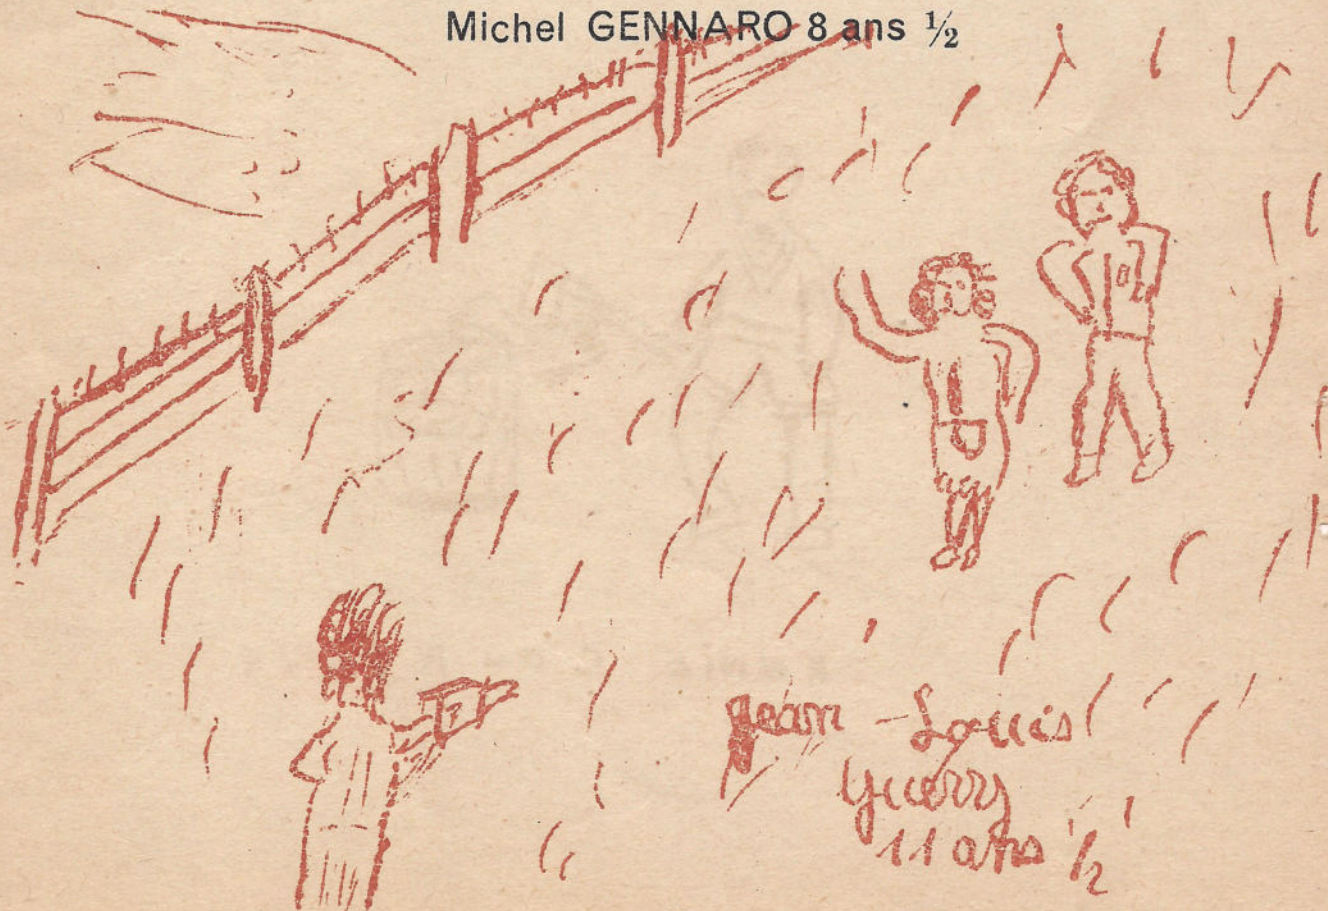 Michel GENNARO 8 ans ½
Jean-Louis
Guerry
11 ans ½